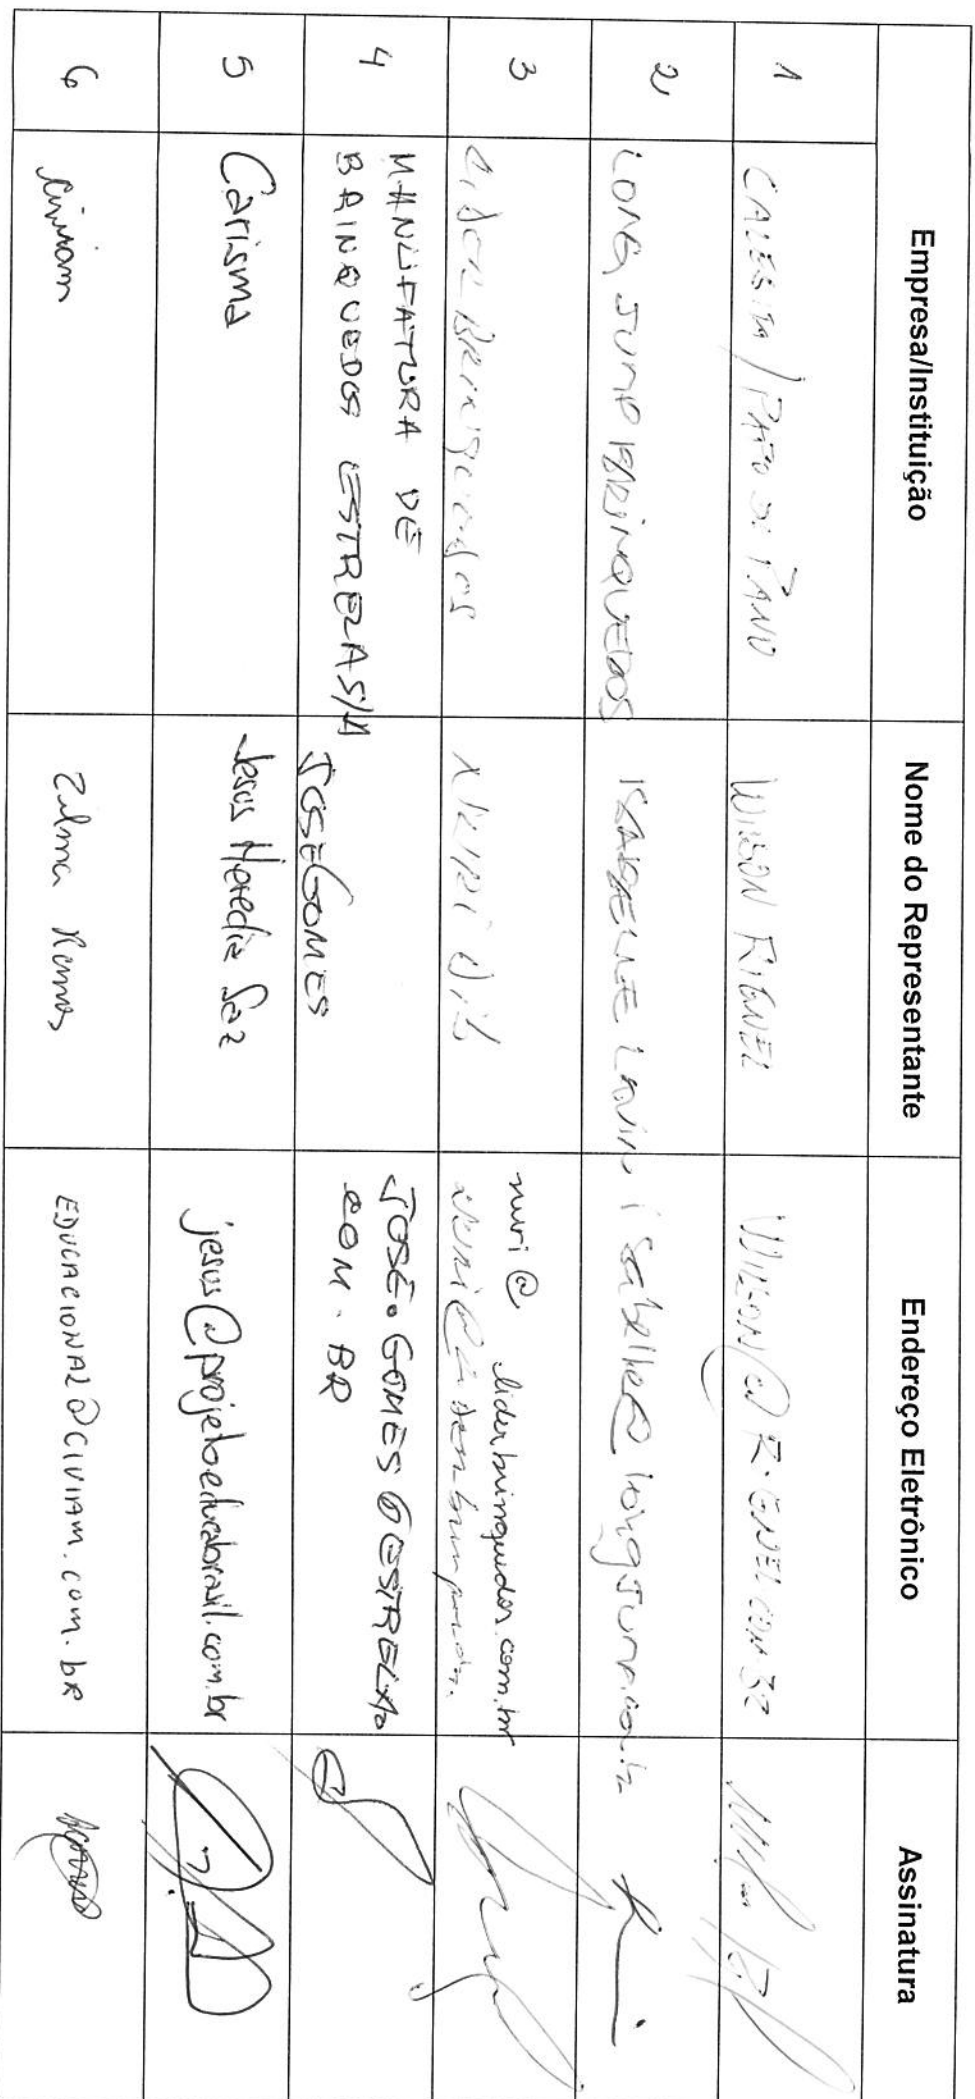 Empresa/Instituição Nome do Representante Endereço Eletrônico Assinatura
1 CALESITA / PANO DI PANO WILSON RIGNEL WILSON@R
2 LONG JUMP BRINQUEDOS ISABELLE isabelle@longjump.com.br
3 Lider Brinquedos NURI nuri@
liderbrinquedos.com.br
4 MANUFATURA DE
BRINQUEDOS ESTRELA S/A JOSÉ GOMES JOSÉ.GOMES@ESTRELA.
COM.BR
5 Carisma Jesus Heredia Saz jesus@projetoeducabrasil.com.br
6 Civiam Zilma Ramos EDUCACIONAL@CIVIAM.COM.BR